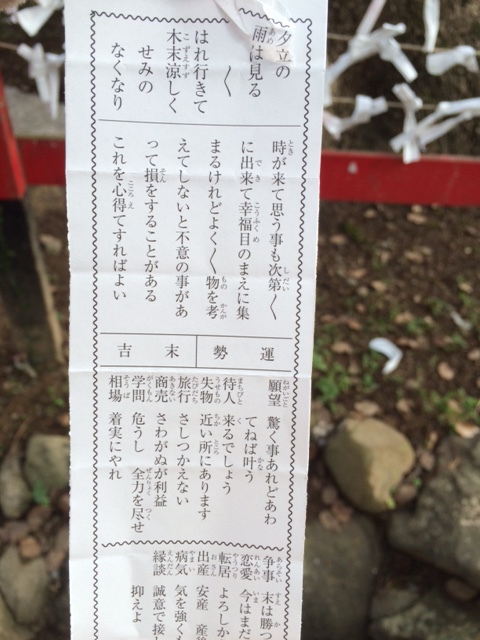 夕立の
雨は見る
〱
はれ行きて
木末涼しく
せみの
なくなり
時が来て思う事も次第〱
に出来て幸福目のまえに集
まるけれどよく〱物を考
えてしないと不意の事があ
って損をすることがある
これを心得てすればよい
運勢 末吉
願望 驚く事あれどあわ
てねば叶う
待人 来るでしょう
失物 近い所にあります
旅行 さしつかえない
商売 さわがぬが利益
学問 危うし 全力を尽せ
相場 着実にやれ
争事 末は勝つ
恋愛 今はまだ
転居 よろしか
出産 安産 産後
病気 気を強く
縁談 誠意で接し
抑えよ